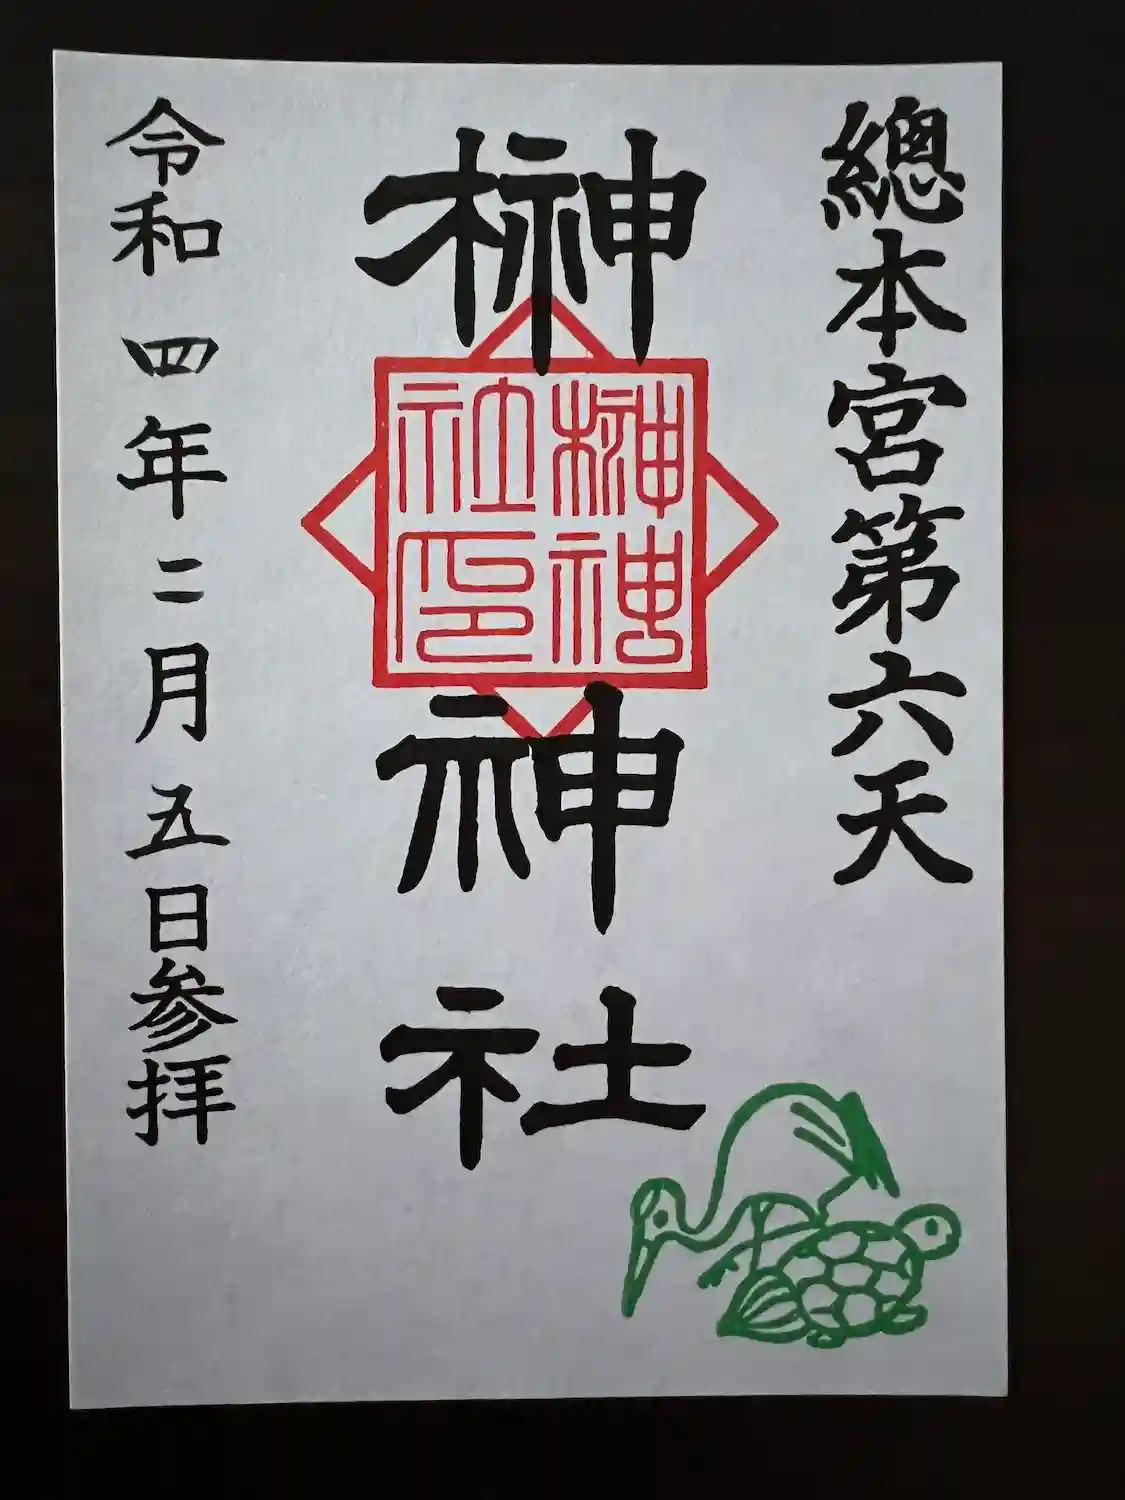 總本宮第六天
榊神社
榊神
社印
令和四年二月五日参拝